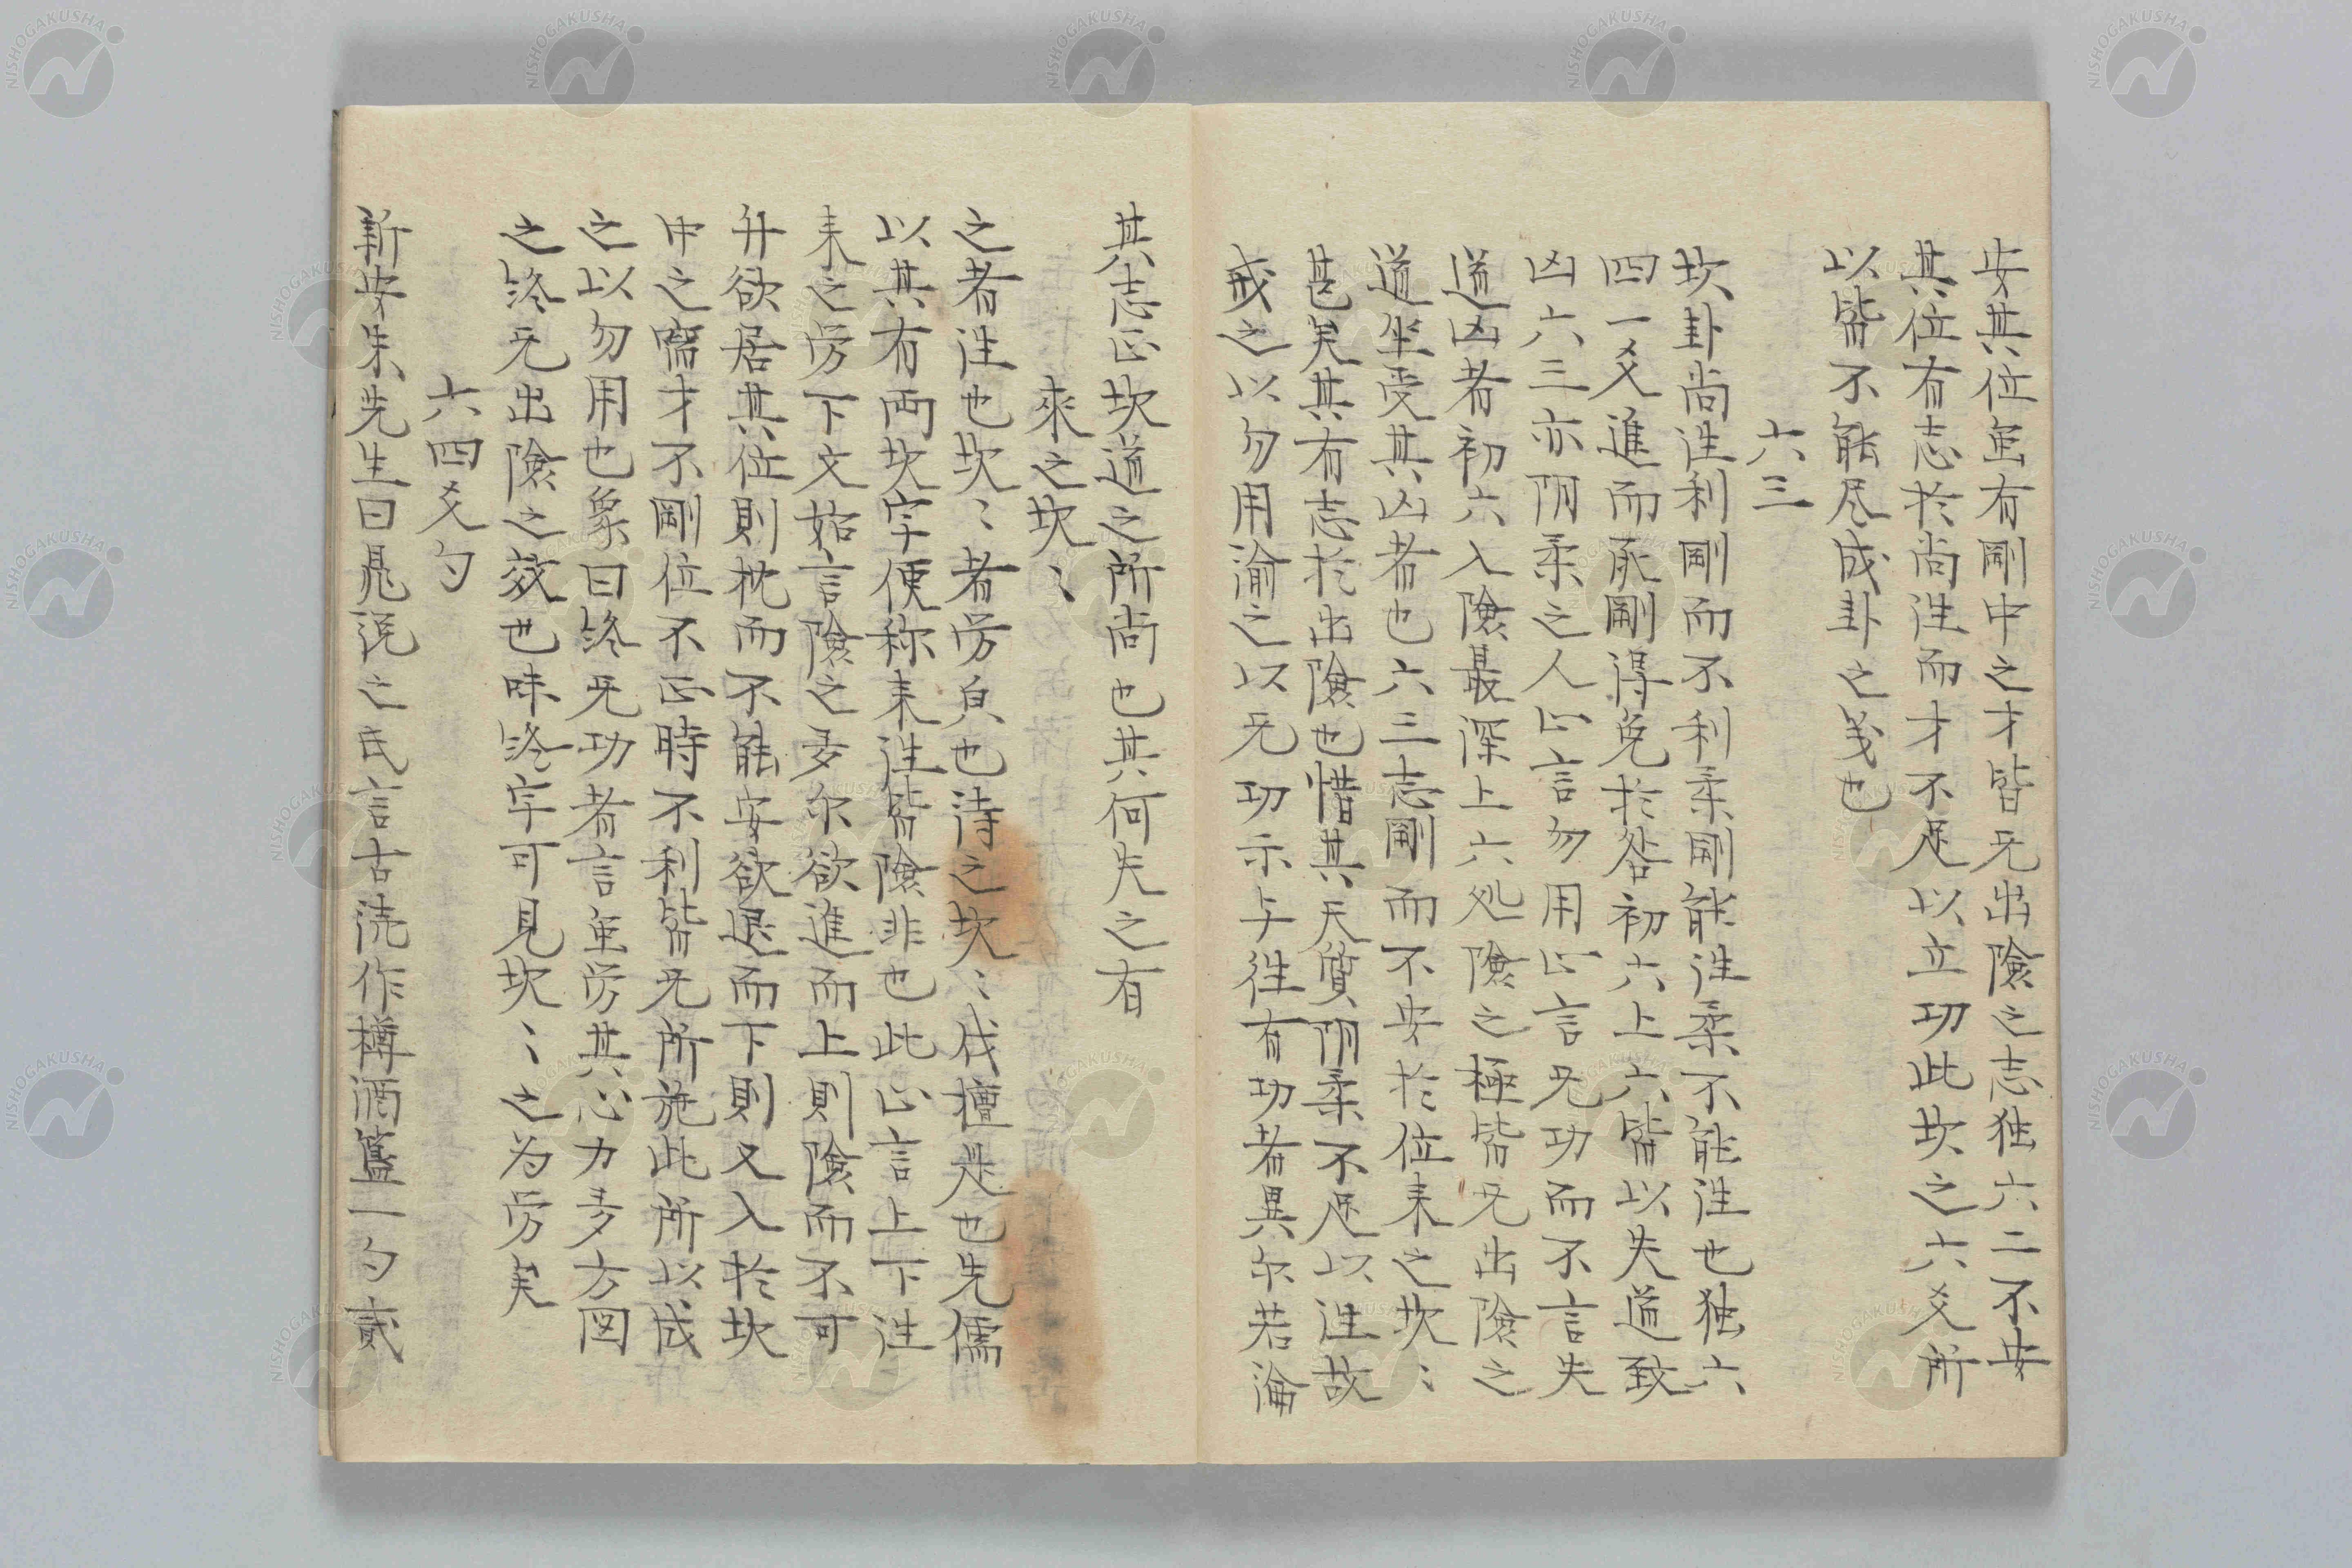 安其位虽有剛中之才皆无出險之志独六二不安
其位有志於尚往而才不足以立功此坎之六爻所
以皆不能尽成卦之义也
六三
坎卦尚往利剛而不利柔剛能往柔不能往也独六
四一爻進而承剛得免於咎初六上六皆以失道致
凶六三亦阴柔之人止言勿用止言无功而不言失
道凶者初六入險最深上六処險之極皆无出險之
道坐受其凶者也六三志剛而不安於位来之坎〻
甚矣其有志於出險也惜其天質阴柔不足以往故
戒之以勿用諭之以无功示与往有功者異尔若淪
其志正坎道之所尚也其何失之有
來之坎〻
之者往也坎〻者劳貞也詩之坎〻伐檀是也先儒
以其有両坎字便称来往皆險非也此止言上下往
来之劳下文始言險之多尔欲進而上則險而不可
升欲居其位則枕而不能安欲退而下則又入於坎
中之窞才不剛位不正時不利皆无所施此所以成
之以勿用也象曰終无功者言虽劳其心力多方図
之終无出險之效也味終字可見坎〻之为劳矣
六四爻勺
新安朱先生曰晁説之氏言古読作樽酒簋一勺貳
NISHOGAKUSHA